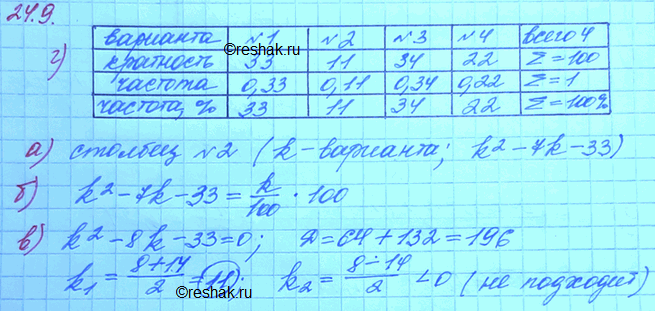 24.9.
г)
варианта №1 №2 №3 №4 всего 4
кратность 33 11 34 22 Σ=100
частота 0,33 0,11 0,34 0,22 Σ=1
частота, % 33 11 34 22 Σ=100%
©reshak.ru
а) столбец №2 (k-варианта; k²-7k-33)
б) k²-7k-33 = k/100 · 100
в) k²-8k-33=0; D=64+132=196
k₁ = (8+14)/2 = 11; k₂ = (8-14)/2 <0 (не подходит)
©reshak.ru